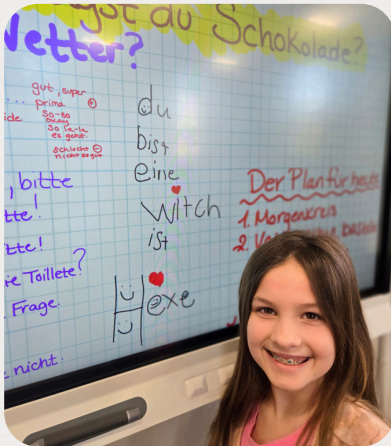 gst du Schokolade?
Wetter?
gut, super
... prima +
so-so
okay
so la-la
es geht.
schlecht
nicht so gut
, bitte
tte!
tte!
ie Toillete?
. Frage.
nicht.
du
bist
eine
witch
ist
Hexe
Der Plan für heute
1. Morgenkreis
2.